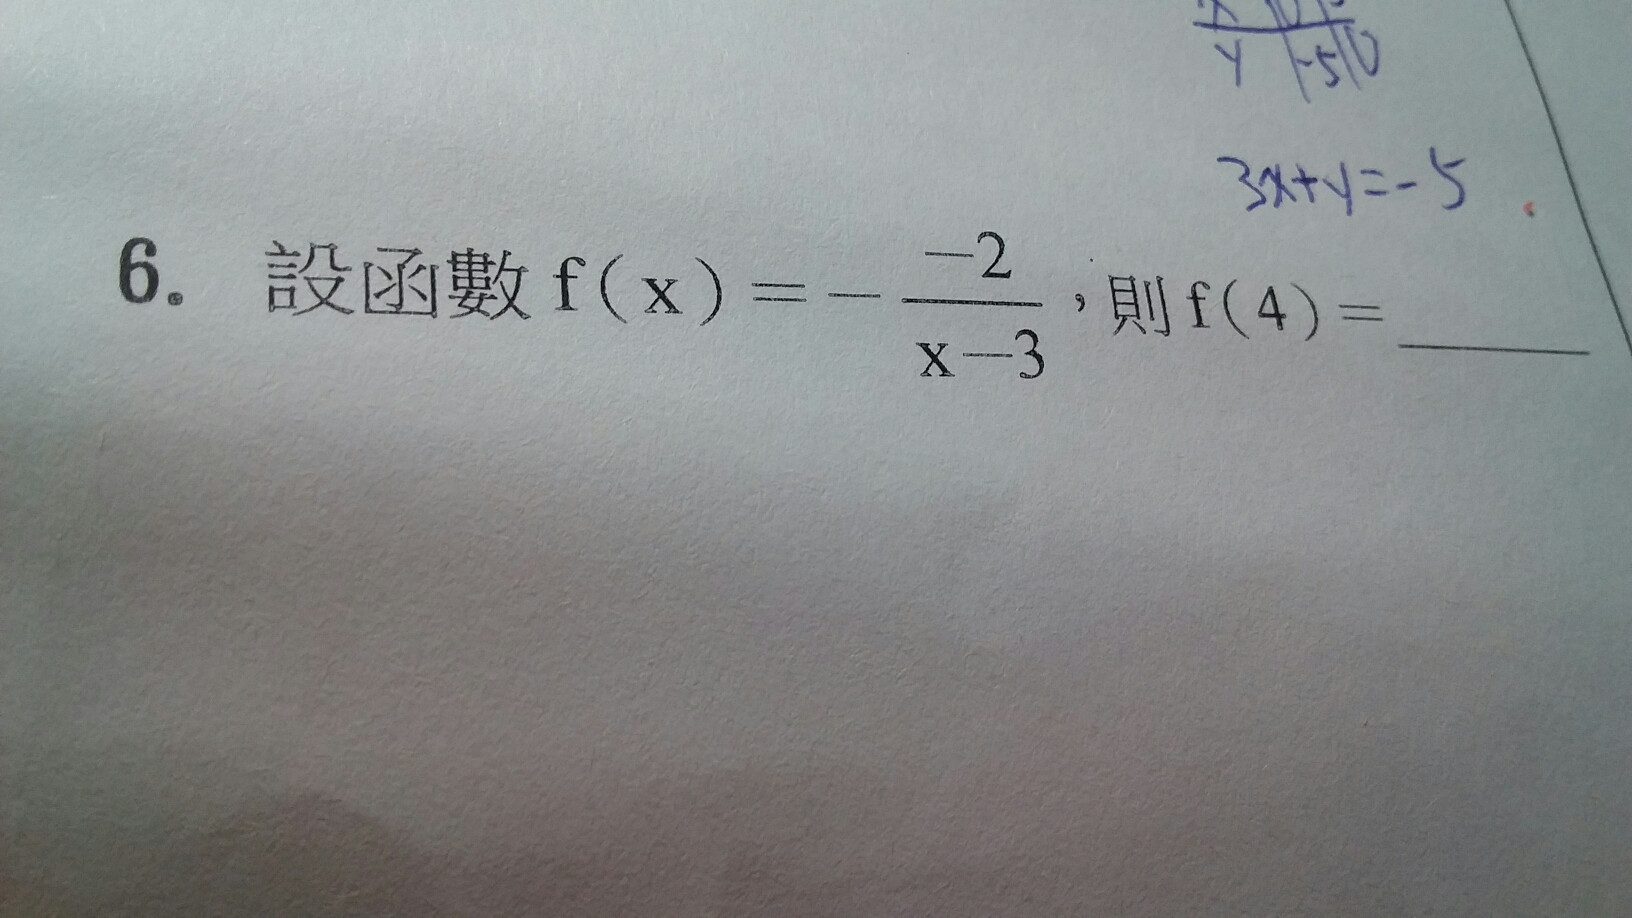 y -5 0
3x+y=-5
6. 設函數 f(x)=-\frac{-2}{x-3},則 f(4)=____